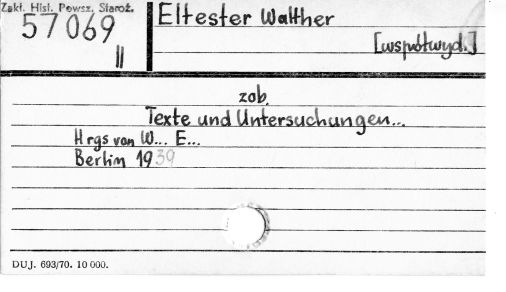 Zakł. Hist. Powsz. Staroż.
57069
II
Eltester Walther
[współwyd.]
zob.
Texte und Untersuchungen...
Hrgs von W... E...
Berlin 1939
DUJ. 693/70. 10 000.